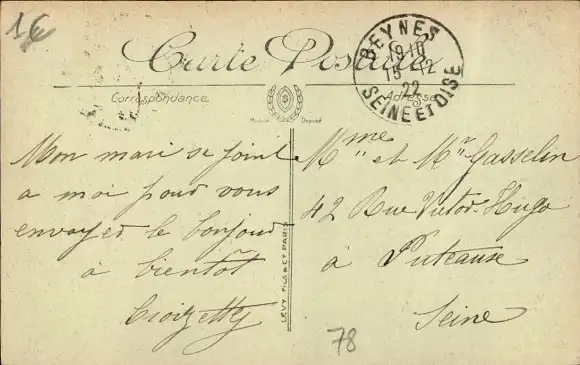 1€
Carte Postale
BEYNES
19 10
15 12
22
SEINE ET OISE
Correspondance
Adresse
Modèle Déposé
Mon mari se joint
a moi pour vous
envoyer le bonjour
à bientôt
Croizetty
Mme et Mr Gasselin
42 Rue Victor-Hugo
à Puteause
Seine
LEVY FILS & Cie PARIS
78